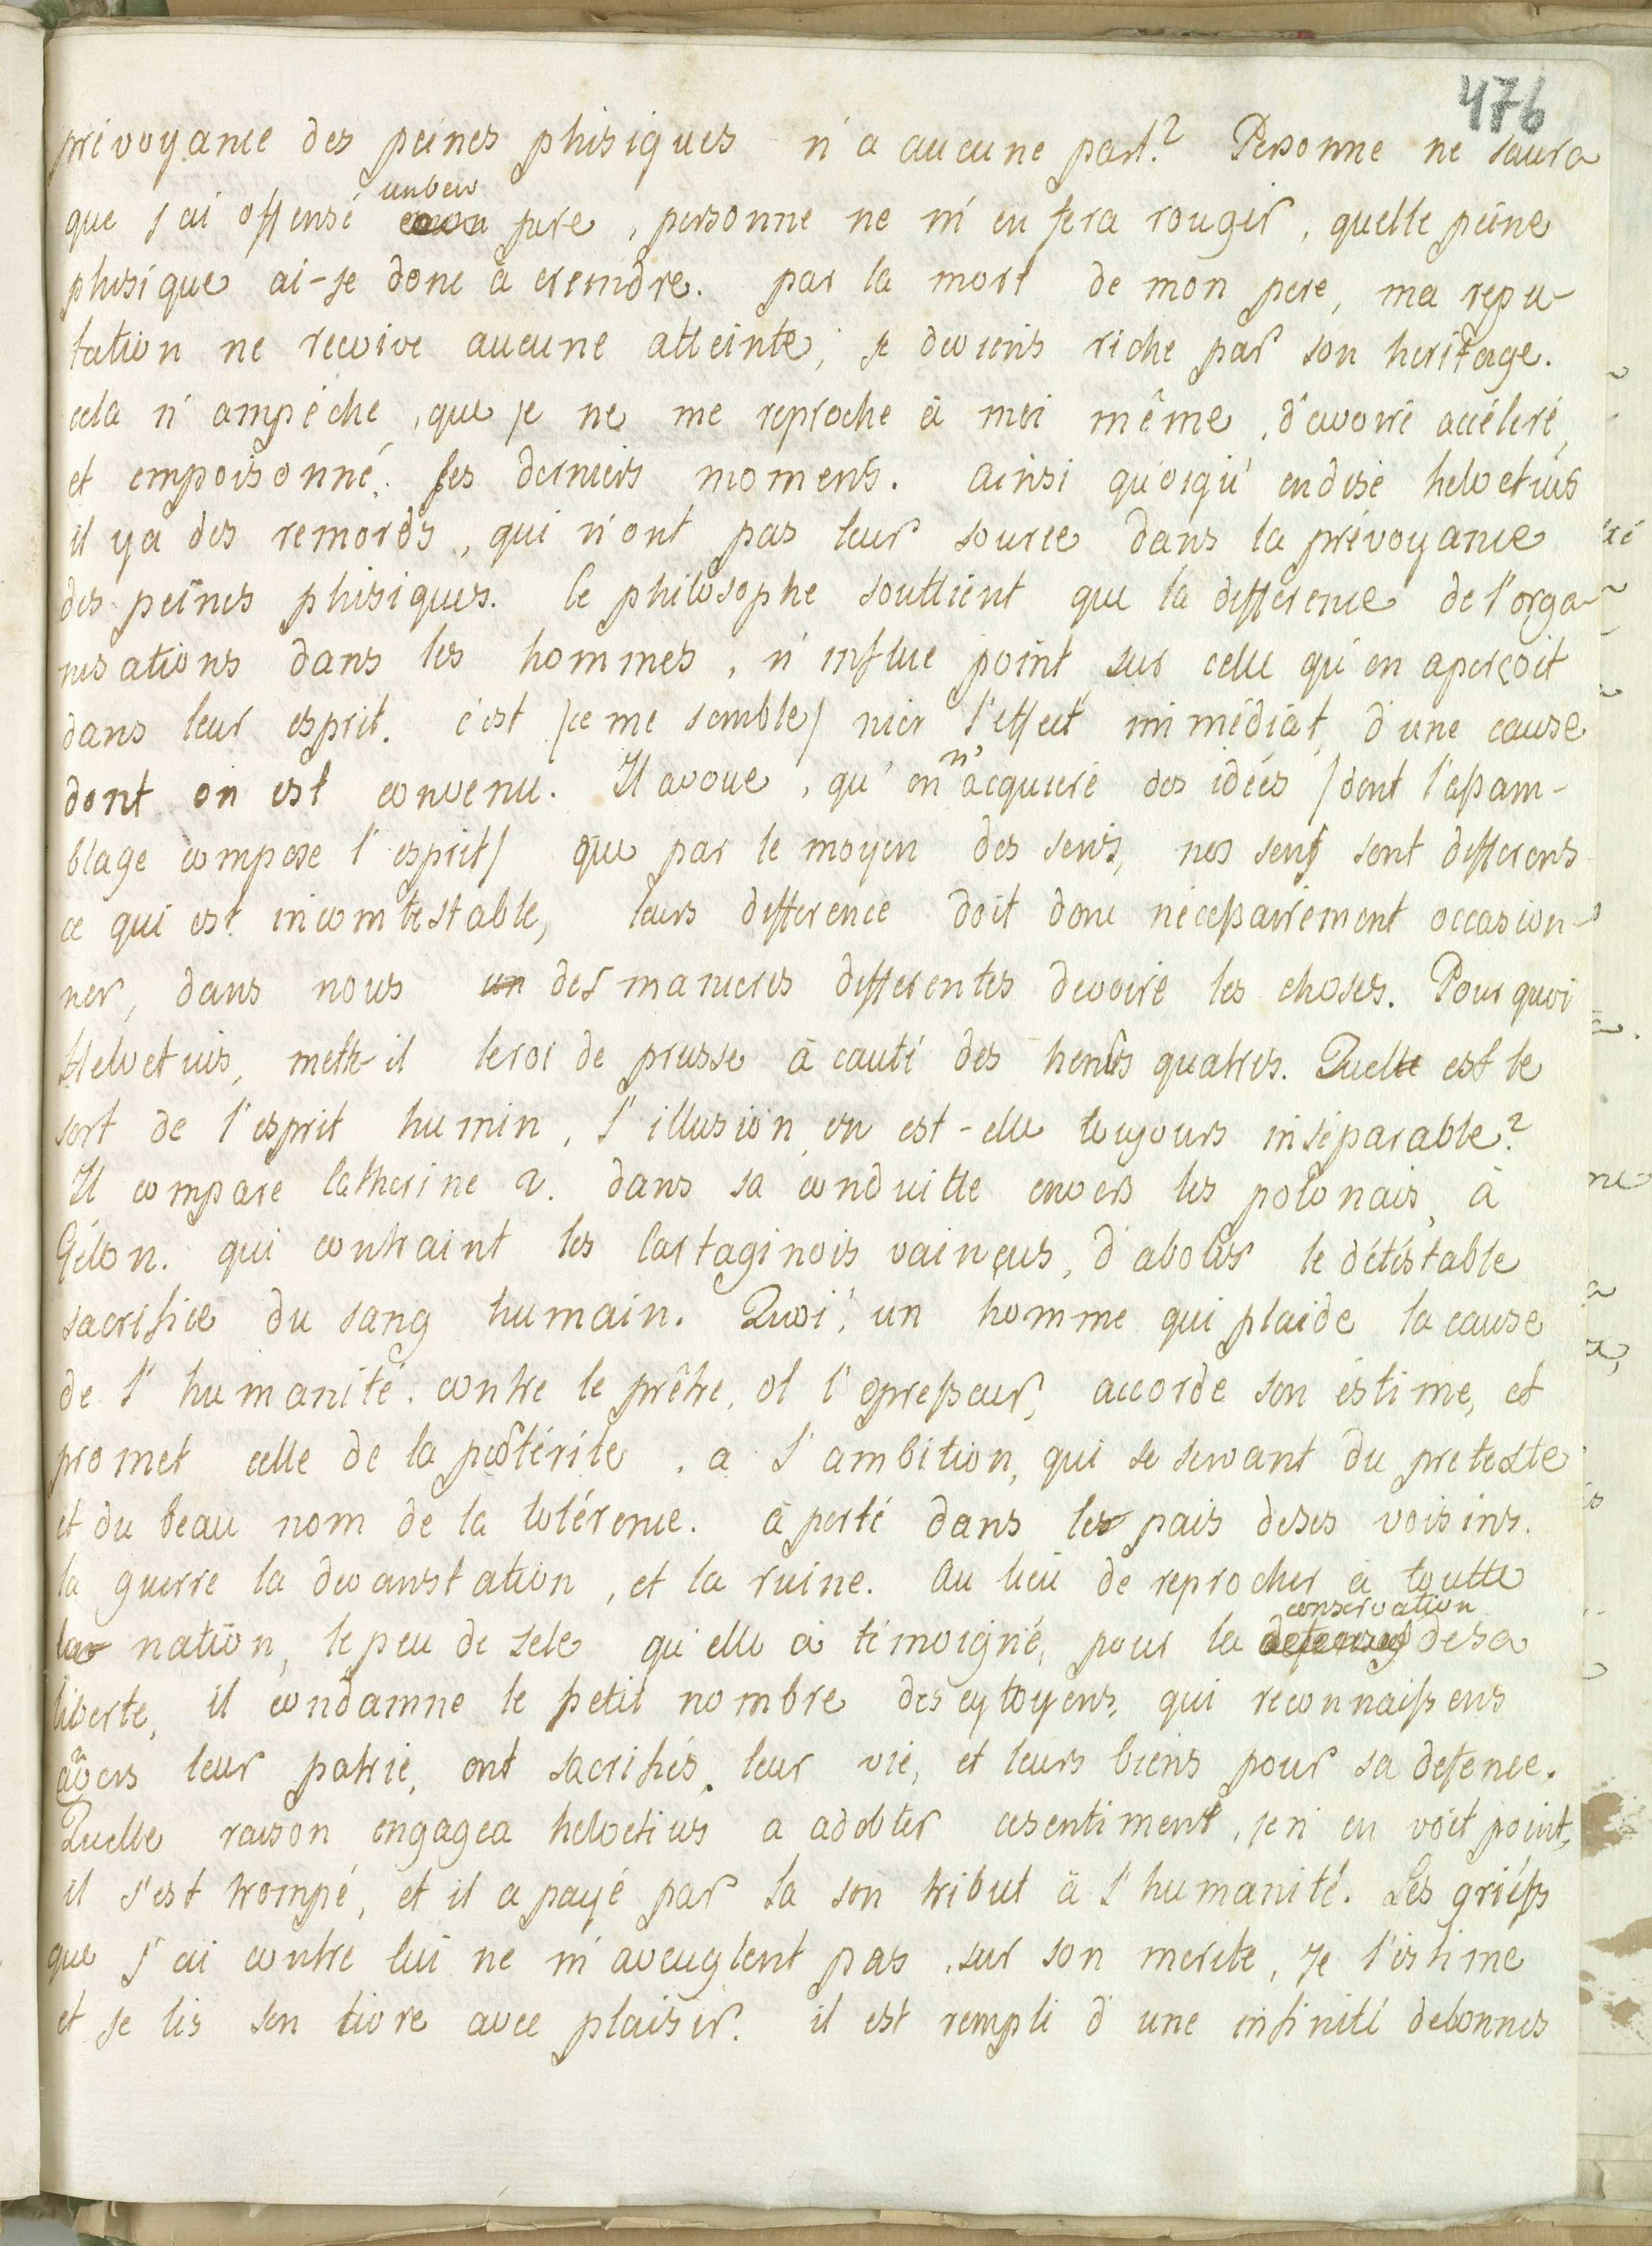 476
prévoyance des peines phisiques n'a aucune part? Personne ne saura
que j'ai offensé un bon pere, personne ne m'en fera rougir, quelle peine
phisique ai-je donc à creindre. par la mort de mon pere, ma repu-
tation ne recoive aucune atteinte, je deviens riche par son heritage.
cela n'ampéche, que je ne me reproche à moi même, d'avoire accéleré,
et empoisonné, ses derniers momens. Ainsi quoiqu' endise helvetius
il ya des remords, qui n'ont pas leur source dans la prévoyance
des peines phisiques. Ce philosophe souttient que la difference de l'orga-
nisations dans les hommes, n'influe point sur celle qu'on aperçoit
dans leur esprit. c'est /ce me semble/ nier l'effect immédiat, d'une cause
dont on est convenu. Il avoue, qu'on n'acquiere des idées /dont l'assam-
blage compose l'esprit/ que par le moyen des sens, nos sens sont differens
ce qui est incomtestable, leurs difference doit donc nécessairement occasion-
ner, dans nous un des manieres differentes devoire les choses. Pourquoi
Helvetius, mett-il leroi de prusse à cauté des henris quatres. Quelle est le
sort de l'esprit humin, l'illusion en est-elle toujours inséparable?
Il compare Catherine 2. dans sa conduitte envers les polonais, à
Gélon. qui contraint les Cartaginois vainçus, d'abolir le détéstable
sacrifice du sang humain. Quoi! un homme qui plaide la cause
de l'humanité. contre le prêtre, et l'opresseur, accorde son éstime, et
promet celle de la postérite, a l'ambition, qui se servant du pretexte
et du beau nom de la tolérence. à porté dans les pais deses voisins.
la guerre la devanstation, et la ruine. Au lieu de reprocher à toutte
la nation, le peu de zele qu'elle à témoigné, pour la conservation desa
liberte, il condamne le petit nombre des cytoyens, qui reconnaissens
anvers leur patrie, ont sacrifiés leur vie, et leurs biens pour sa defence.
Quelle raison engagea helvetius a adobter cesentiment, je n'en voit point,
il s'est trompé, et il a payé par la son tribut à l'humanité. Les griefs
que j'ai contre lui ne m'aveuglent pas, sur son merite, je l'estime
et je lis son livre avec plaisir. il est rempli d'une infinité debonnes